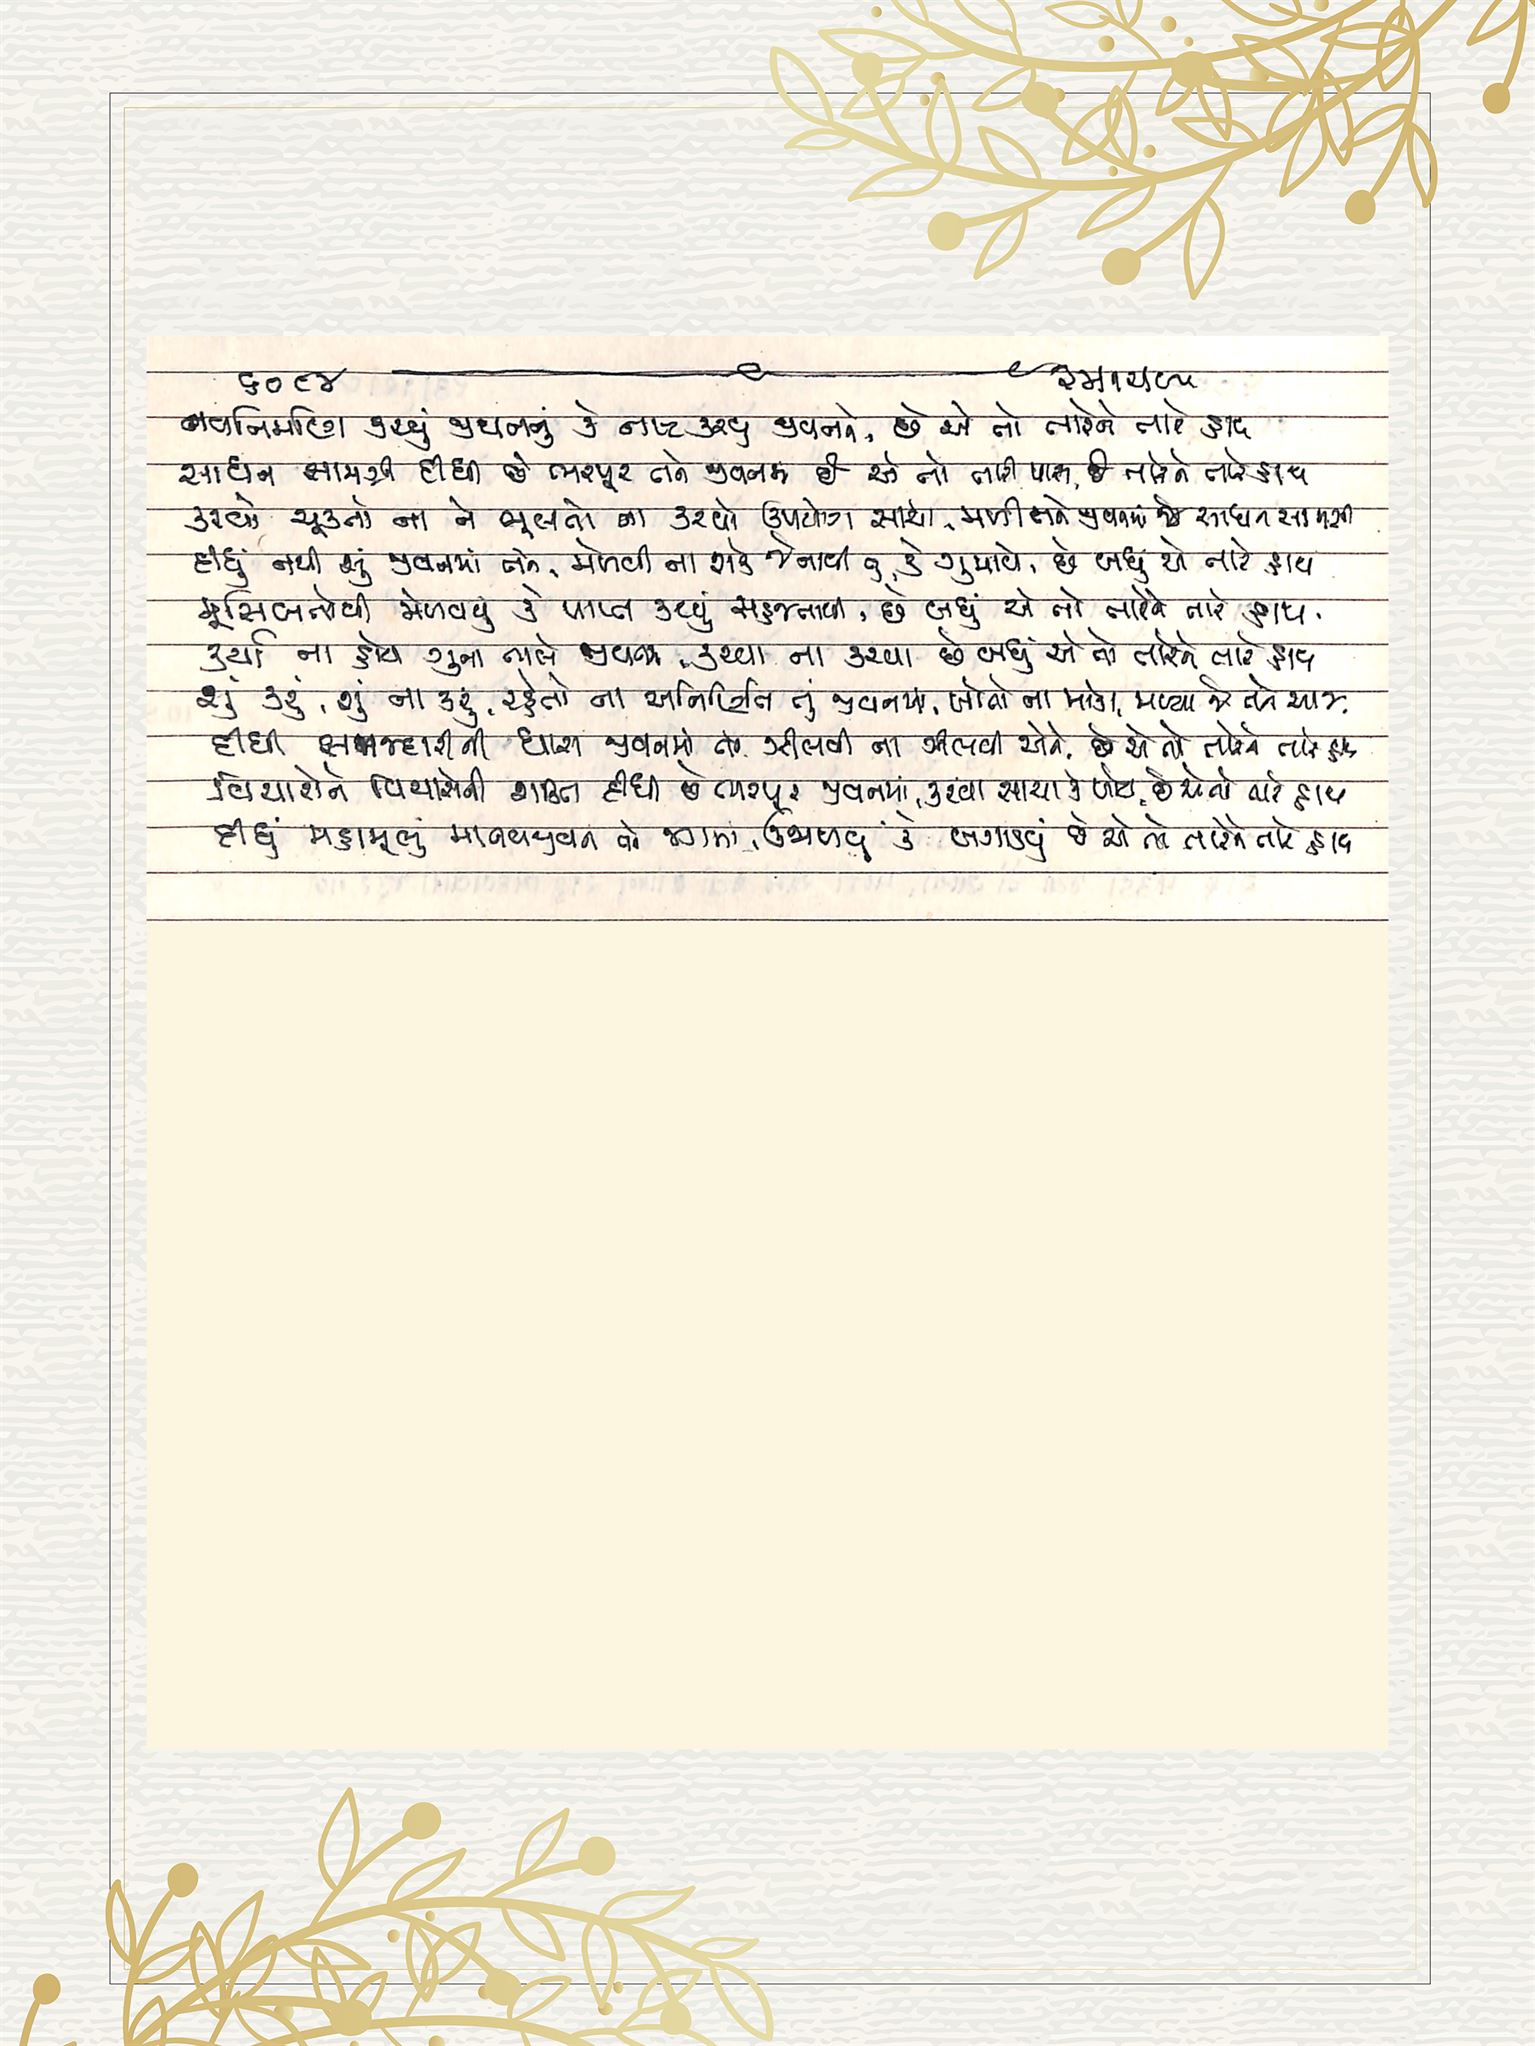 ૬૦૯૪
નવનિર્માણ કરવું જીવનનું કે નષ્ટ કરવું જીવનને, છે એ તો તારેને તારે હાથ
સાધન સામગ્રી દીધી છે ભરપૂર તને જીવનમાં છે એ તો તારી પાસ, છે તારેને તારે હાથ
કરવો ચૂકતો ના ને ભૂલતો ના કરવો ઉપયોગ સાચો, મળી તને જીવનમાં જે સાધન સામગ્રી
દીધું નથી શું જીવનમાં તને, મેળવી ના શકે જેનાથી તું, કે ગુમાવે, છે બધું એ તારે હાથ
મુસિબતોથી મેળવવું કે પ્રાપ્ત કરવું સહજતાથી, છે બધું એ તો તારેને તારે હાથ.
કર્યા ના હોય ગુના ભલે જીવનમાં, કરવા ના કરવા છે બધું એ તો તારેને તારે હાથ
શું કરું, શું ના કરું, રહેતો ના અનિશ્ચિત તું જીવનમાં, ખોતો ના મોકા, મળ્યા જે તને આજ
દીધી સમજદારીની ધારા જીવનમાં તને, ઝીલવી ના ઝીલવી એને, છે એ તો તારેને તારે હાથ
વિચારોને વિચારોની શક્તિ દીધી છે ભરપૂર જીવનમાં, કરવા સાચા કે ખોટા, છે એ તો તારે હાથ
દીધું મહામૂલું માનવજીવન તને જગમાં, ઉજાળવું કે બગાડવું છે એ તો તારેને તારે હાથ